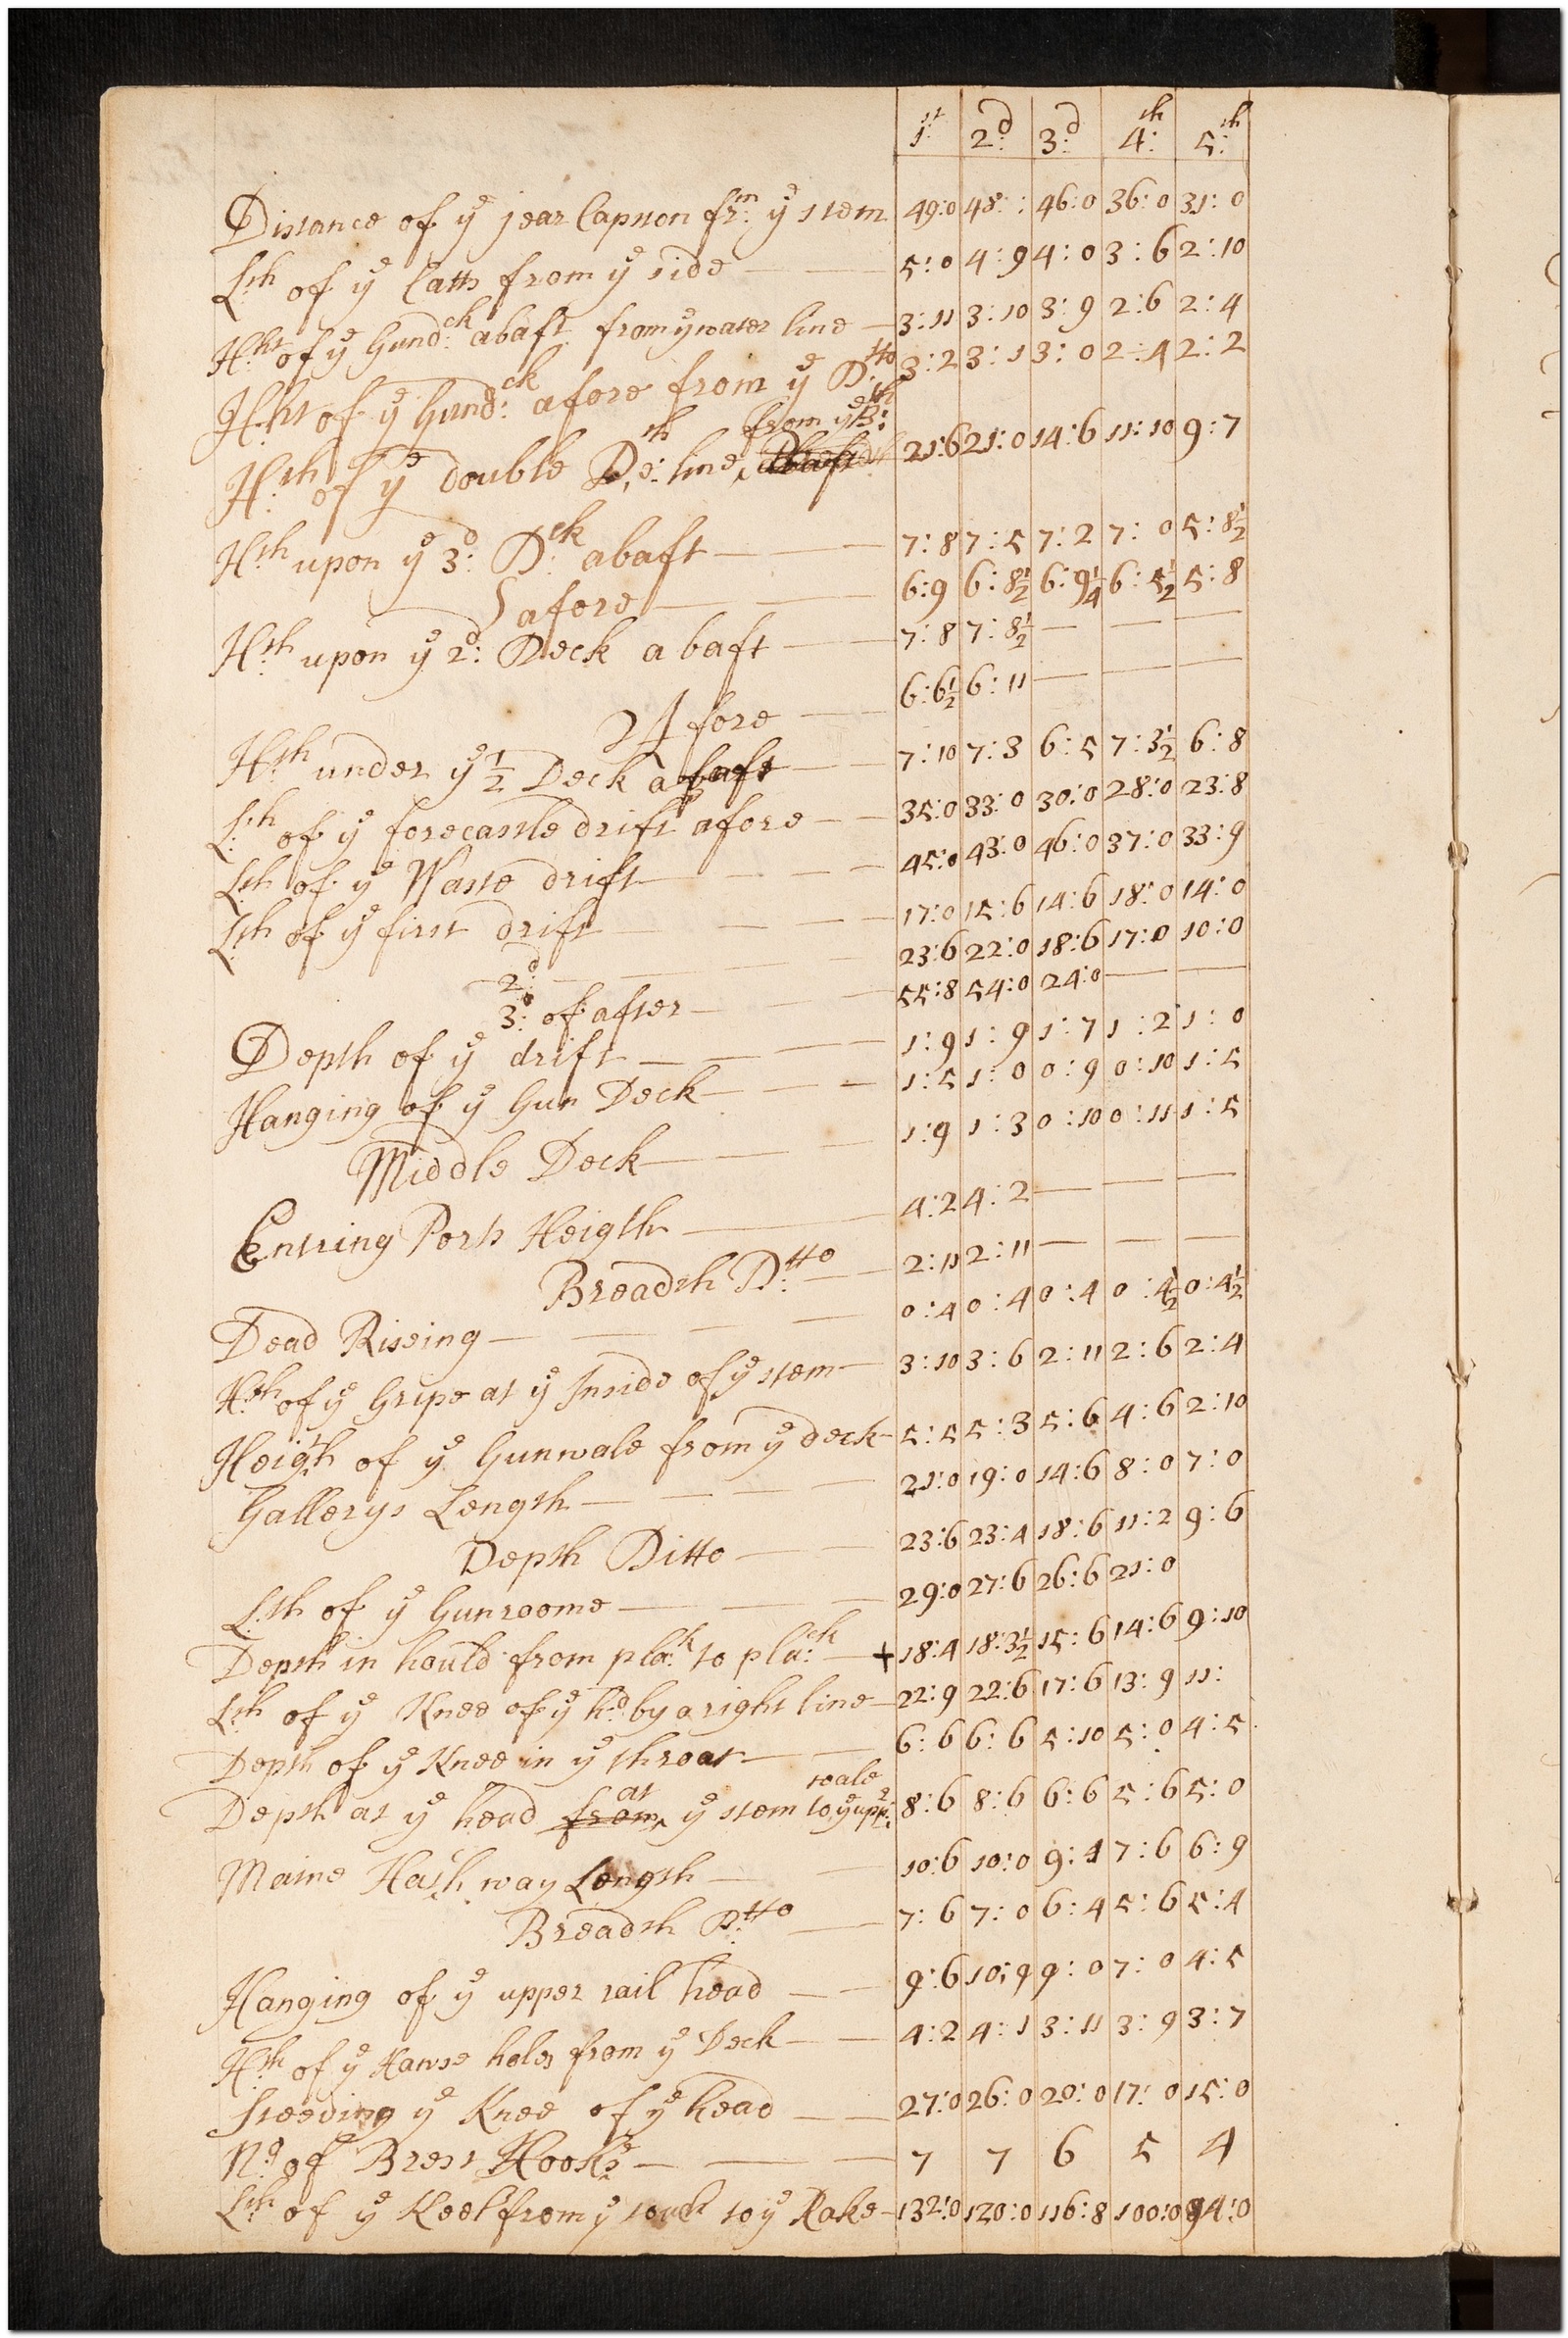 1st 2:d 3:d 4:th 5:th
Distance of ye jear Capston fr:m ye stem 49:0 48: : 46:0 36:0 31:0
L:th of ye Catts from ye side 5:0 4:9 4:0 3:6 2:10
H:ht of ye Gund:ck abaft from ye water line 3:11 3:10 3:9 2:6 2:4
H:ht of ye Gund:ck afore from ye D:tto 3:2 3:1 3:0 2:4 2:2
from ye B:th
H:th of ye double line 21:6 21:0 14:6 11:10 9:7
H:th upon ye 3:d D:ck abaft 7:8 7:5 7:2 7:0 5:8½
afore 6:9 6:8½ 6:9¼ 6:5½ 5:8
H:th upon ye 2:d Deck abaft 7:8 7:8½ — — —
Afore 6:6½ 6:11 — — —
H:th under ye ½ Deck abaft 7:10 7:3 6:5 7:3½ 6:8
L:th of ye forecastle drift afore 35:0 33:0 30:0 28:0 23:8
L:th of ye Waste drift 45:0 43:0 46:0 37:0 33:9
L:th of ye first drift 17:0 15:6 14:6 18:0 14:0
2:d 23:6 22:0 18:6 17:0 10:0
3:d of after 55:8 54:0 24:0 — —
Depth of ye drift 1:9 1:9 1:7 1:2 1:0
Hanging of ye Gun Deck 1:5 1:0 0:9 0:10 1:5
Middle Deck 1:9 1:3 0:10 0:11 1:5
Entring Ports Heigth 4:2 4:2 — — —
Breadth D:tto 2:11 2:11 — — —
Dead Riseing 0:4 0:4 0:4 0:4½ 0:4½
H:th of ye Gripe at ye Inside of ye stem 3:10 3:6 2:11 2:6 2:4
Heigth of ye Gunwale from ye deck 5:5 5:3 5:6 4:6 2:10
Gallerys Length 21:0 19:0 14:6 8:0 7:0
Depth Ditto 23:6 23:4 18:6 11:2 9:6
L:th of ye Gunroome 29:0 27:6 26:6 21:0
Depth in hould from pla:k to pla:ck + 18:4 18:3½ 15:6 14:6 9:10
L:th of ye Knee of ye h:d by a right line 22:9 22:6 17:6 13:9 11:
Depth of ye Knee in ye throat 6:6 6:6 5:10 5:0 4:5
at wale
Depth at ye head from ye stem to ye upp:r 8:6 8:6 6:6 5:6 5:0
Maine Hatch way Length 10:6 10:0 9:4 7:6 6:9
Breadth D:tto 7:6 7:0 6:4 5:6 5:4
Hanging of ye upper rail head 9:6 10:9 9:0 7:0 4:5
H:th of ye Hawse holes from ye Deck 4:2 4:1 3:11 3:9 3:7
Steeving ye Knee of ye head 27:0 26:0 20:0 17:0 15:0
N:o of Brest Hooks 7 7 6 5 4
L:th of ye Keel from ye touch to ye Rake 132:0 120:0 116:8 100:0 94:0